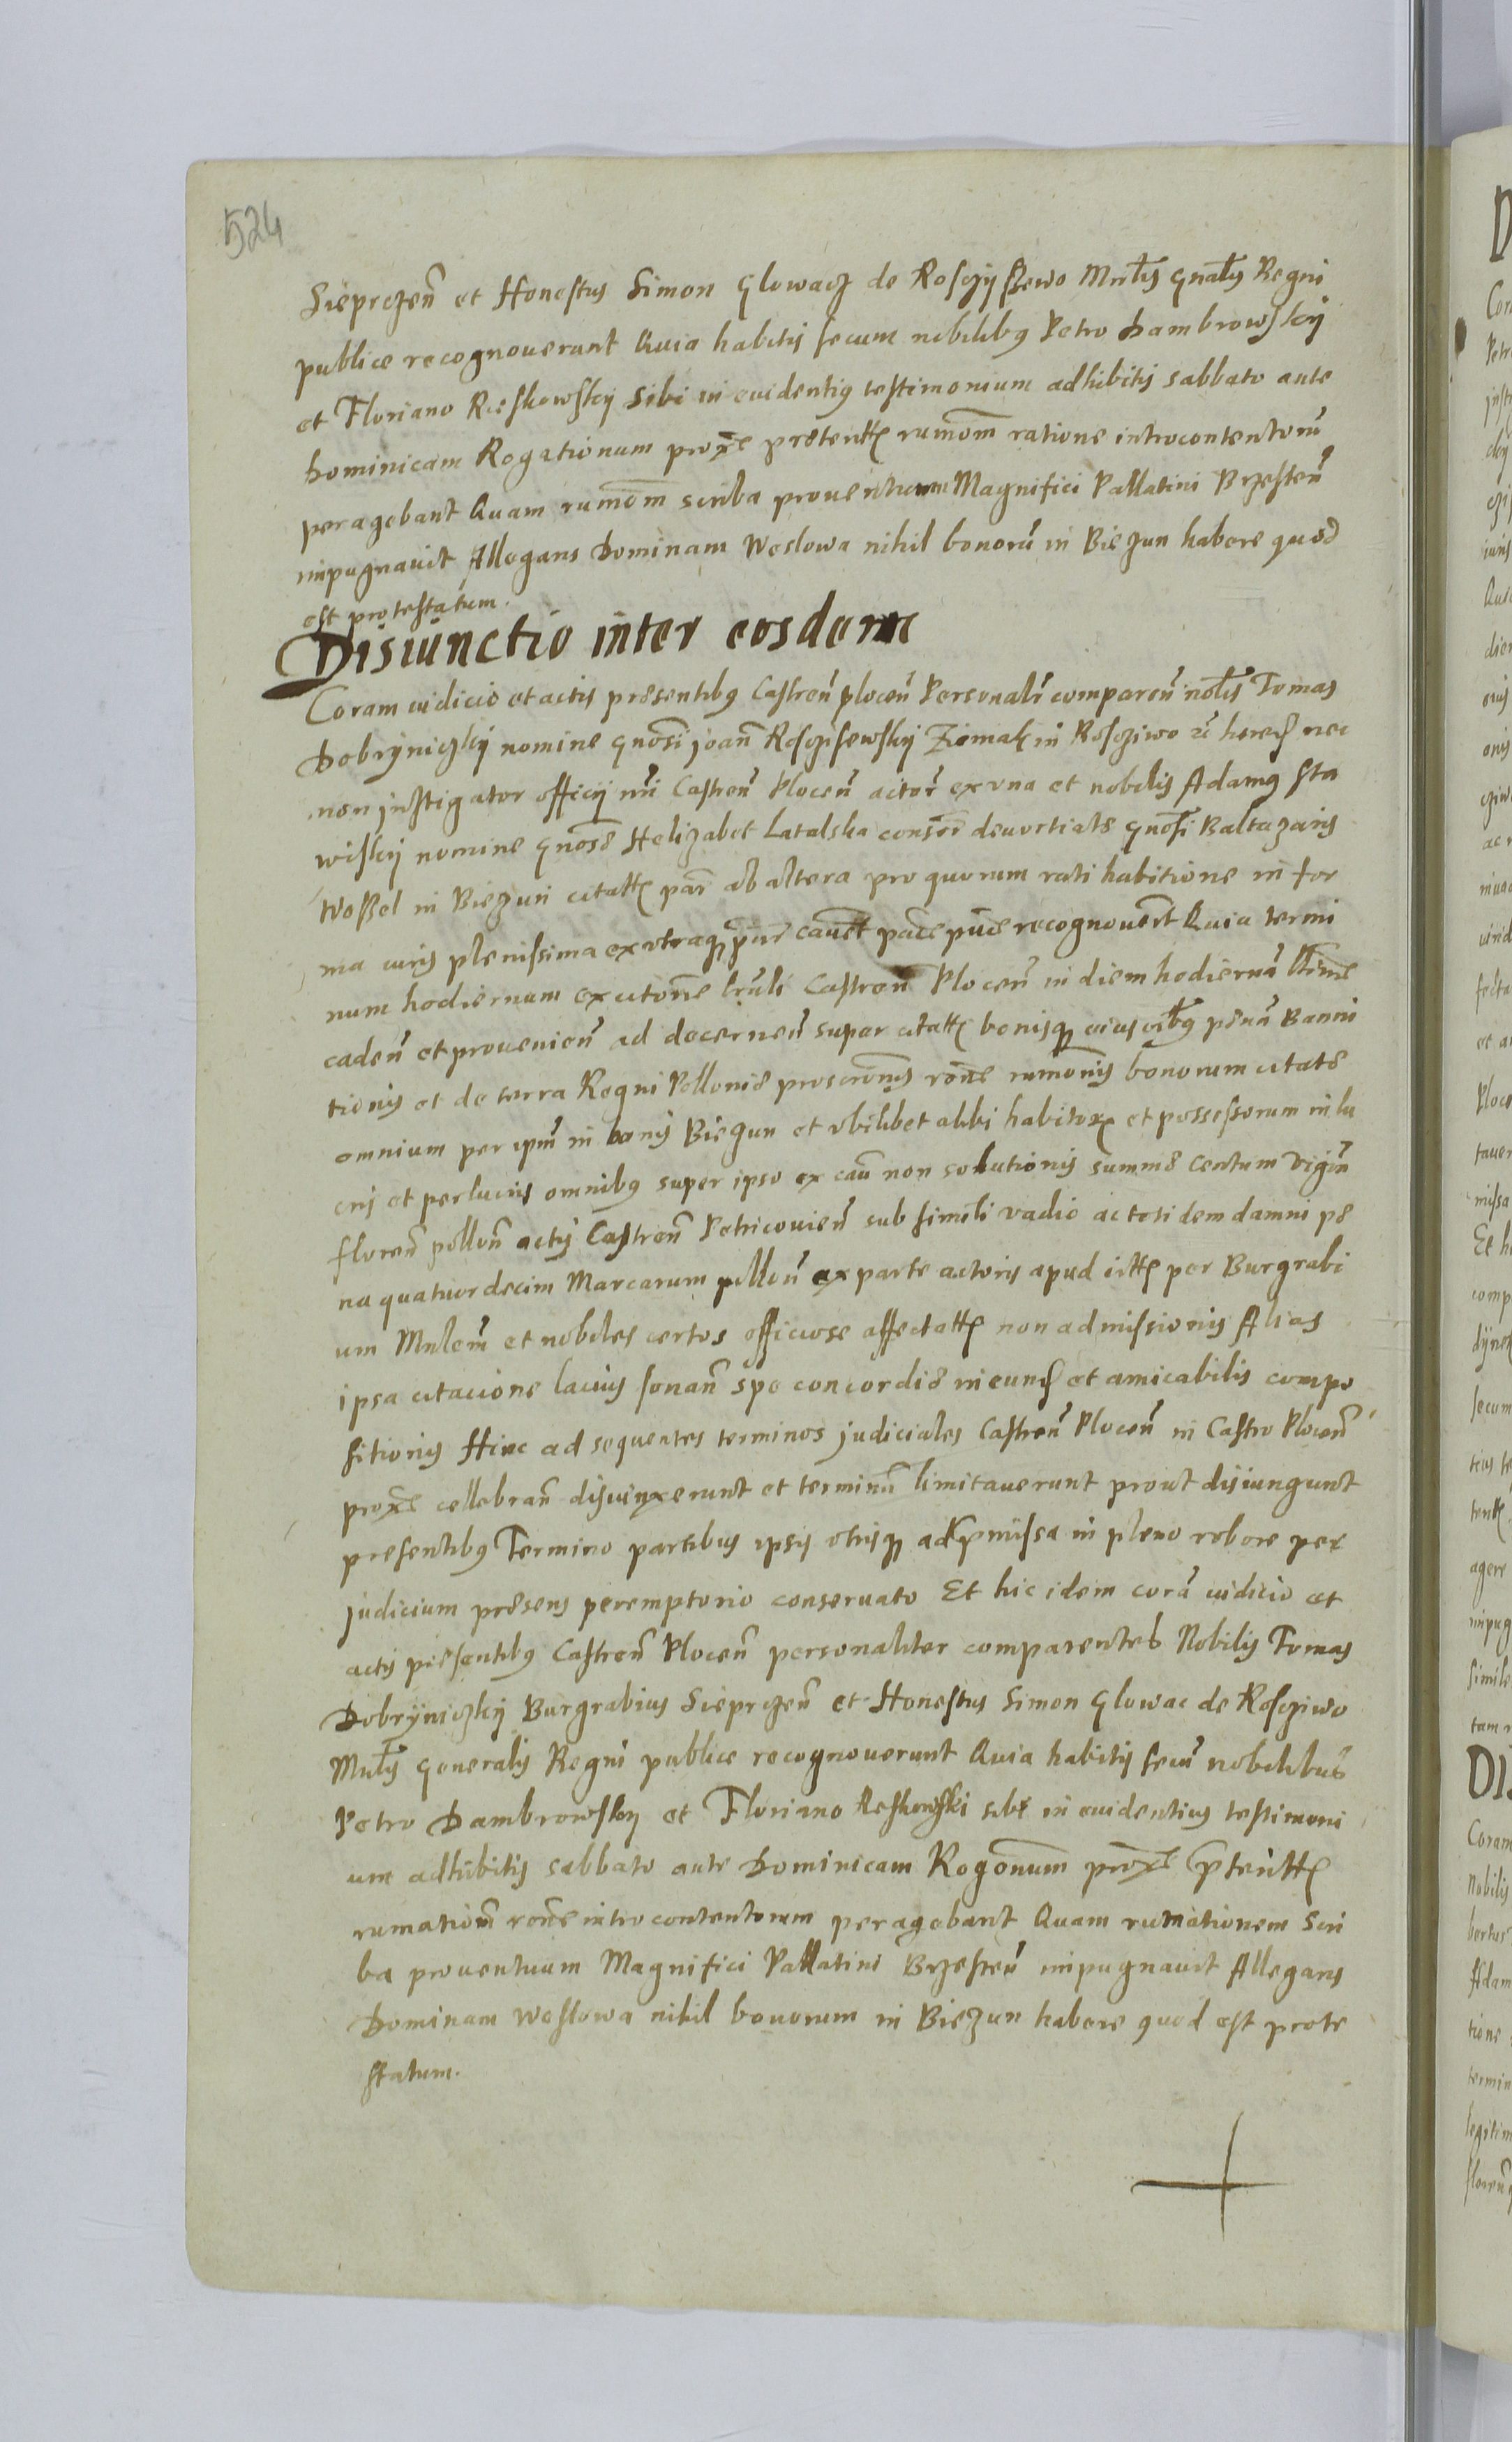 524
Sieprczen̄ et Honestus Simon Glowacz de Rosczyszewo Mnlṙis Gnalis Regni
publice recognoverunt Quia habitis secum nobilibus Petro Dambrowskij
et Floriano Rzeskowskij sibi in evidentius testimonium adhibitis sabbato ante
Dominicam Rogationum proxe preteritt rumōm ratione introcontentorū
peragebant Quam rumōm scriba proventuum Magnifici Pallatini Brzesten̄
inpugnavit Allegans Dominam Weslowa nihil bonorū in Biezun habere quod
est protestatum.
Disiunctio inter eosdem
Coram iudicio et actis presentibus Castren̄ plocen̄ Personalr̄ comparen̄ nolis Tomas
Dobryniczkij nomine Gnosi Joan̄ Rosczisewskij Ziemak in Rosciziwo et hered nec
non instigator officij nr̄i Castren̄ Plocen̄ actor̄ ex vna et nobilis Adamus Sta
wiskij nomine Gnose Helizabet Latalska consor̄ devortiale Gnosi Baltazaris
Wessel in Biezun citatt par̄ ab altera pro quorum rati habitione in for
ma iuris plenissima ex vtraque par̄ cavet pace puce recognovert Quia termi
num hodiernum ex citone truli Castren̄ Plocen̄ in diem hodiernā ltime
caden̄ et provenien̄ ad decernen̄ super citatt bonisque eius oibus penā Banni
tionis et de terra Regni Pollonie proscronis rone rumonis bonorum citate
omnium per ipm̄ in bonis Biezun et vbilibet alibi habitor et possessorum in lu
cris et perlucris omnibus super ipso ex cau non solutionis summe centum vigin̄
floren̄ pollon̄ actis Castren̄ Petricovien̄ sub simili vadio ac totidem damni pe
na quatuordecim Marcarum pollon̄ ex parte actoris apud citt per Burgrabi
um Mnlem̄ et nobiles certos officiose affectatt non admissionis Alias
ipsa citacione lacius sonan̄ spe concordie ineund et amicabilis compo
sitionis Hinc ad sequentes terminos judiciales Castren̄ Plocen̄ in Castro Plocen̄
proxe cellebran̄ disiunxerunt et terminū limitaverunt prout disiungunt
presentibus Termino partibus ipsis vtrisque ad premissa in pleno robore per
judicium presens peremptorio conservato Et hic idem corā iudicio et
actis presentibus Castren̄ Plocen̄ personaliter comparentes Nobilis Tomas
Dobryniczkij Burgrabius Sieprczen̄ et Honestus Simon Glowac de Rosciziwo
Mnlis Generalis Regni publice recognoverunt Quia habitis secū nobilibus
Petro Dambrowskij et Floriano Reskowski sibi in evidentius testimoni
um adhibitis sabbato ante Dominicam Rogonum proxe preteritt
rumationē rone introcontentorum peragebant Quam rumationem Scri
ba proventuum Magnifici Pallatini Brzesten̄ inpugnavit Allegans
Dominam Weslowa nihil bonorum in Biezun habere quod est prote
statum.